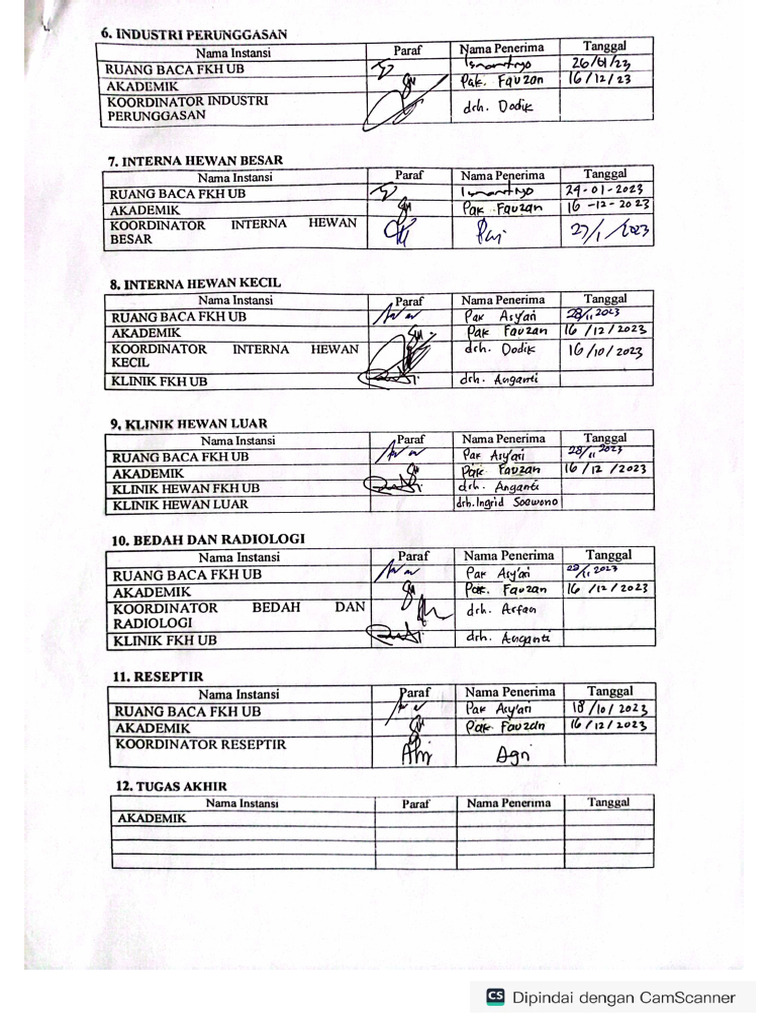 6. INDUSTRI PERUNGGASAN
Nama Instansi Paraf Nama Penerima Tanggal
RUANG BACA FKH UB 26/01/23
AKADEMIK Pak. Fauzan 16/12/23
KOORDINATOR INDUSTRI PERUNGGASAN drh. Dodik
7. INTERNA HEWAN BESAR
Nama Instansi Paraf Nama Penerima Tanggal
RUANG BACA FKH UB 24-01-2023
AKADEMIK Pak Fauzan 16-12-2023
KOORDINATOR INTERNA HEWAN BESAR 27/1/2023
8. INTERNA HEWAN KECIL
Nama Instansi Paraf Nama Penerima Tanggal
RUANG BACA FKH UB Pak Asy'ari 28/11 2023
AKADEMIK Pak Fauzan 16/12/2023
KOORDINATOR INTERNA HEWAN KECIL drh. Dodik 16/10/2023
KLINIK FKH UB drh. Anganti
9. KLINIK HEWAN LUAR
Nama Instansi Paraf Nama Penerima Tanggal
RUANG BACA FKH UB Pak Asy'ari 28/11 2023
AKADEMIK Pak Fauzan 16/12/2023
KLINIK HEWAN FKH UB drh. Anganti
KLINIK HEWAN LUAR drh.Ingrid Soewono
10. BEDAH DAN RADIOLOGI
Nama Instansi Paraf Nama Penerima Tanggal
RUANG BACA FKH UB Pak Asy'ari 2023
AKADEMIK Pak. Fauzan 16/12/2023
KOORDINATOR BEDAH DAN RADIOLOGI drh. Arfan
KLINIK FKH UB drh. Anganti
11. RESEPTIR
Nama Instansi Paraf Nama Penerima Tanggal
RUANG BACA FKH UB Pak Asy'ari 18/10/2023
AKADEMIK Pak. Fauzan 16/12/2023
KOORDINATOR RESEPTIR Agri
12. TUGAS AKHIR
Nama Instansi Paraf Nama Penerima Tanggal
AKADEMIK
CS Dipindai dengan CamScanner